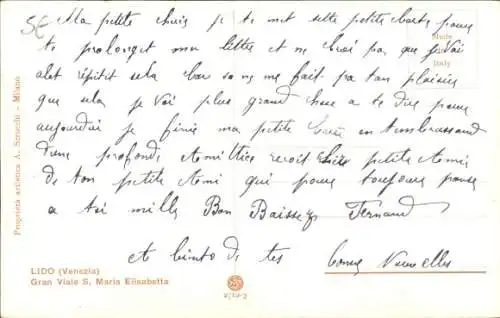 5e
Ma petite cheri je te met sette petite carte pour
te prolonget ma lettre et ne croi pas que je vai
alet repitit sela car sa ne me fait pa tan plaisir
que sela je vai plus grand chose a te dire pour
aujourdui je finie ma petite en tembrassand
dune profonde Amittiee recoit chere petite Amie
de ton petite Ami qui pour toujours panse
a toi mille Bon Baisse Fernand
ete biento de tes bonne Nouvelles
Made
Italy
Proprietà artistica A. Scrocchi - Milano
LIDO (Venezia)
Gran Viale S. Maria Elisabetta